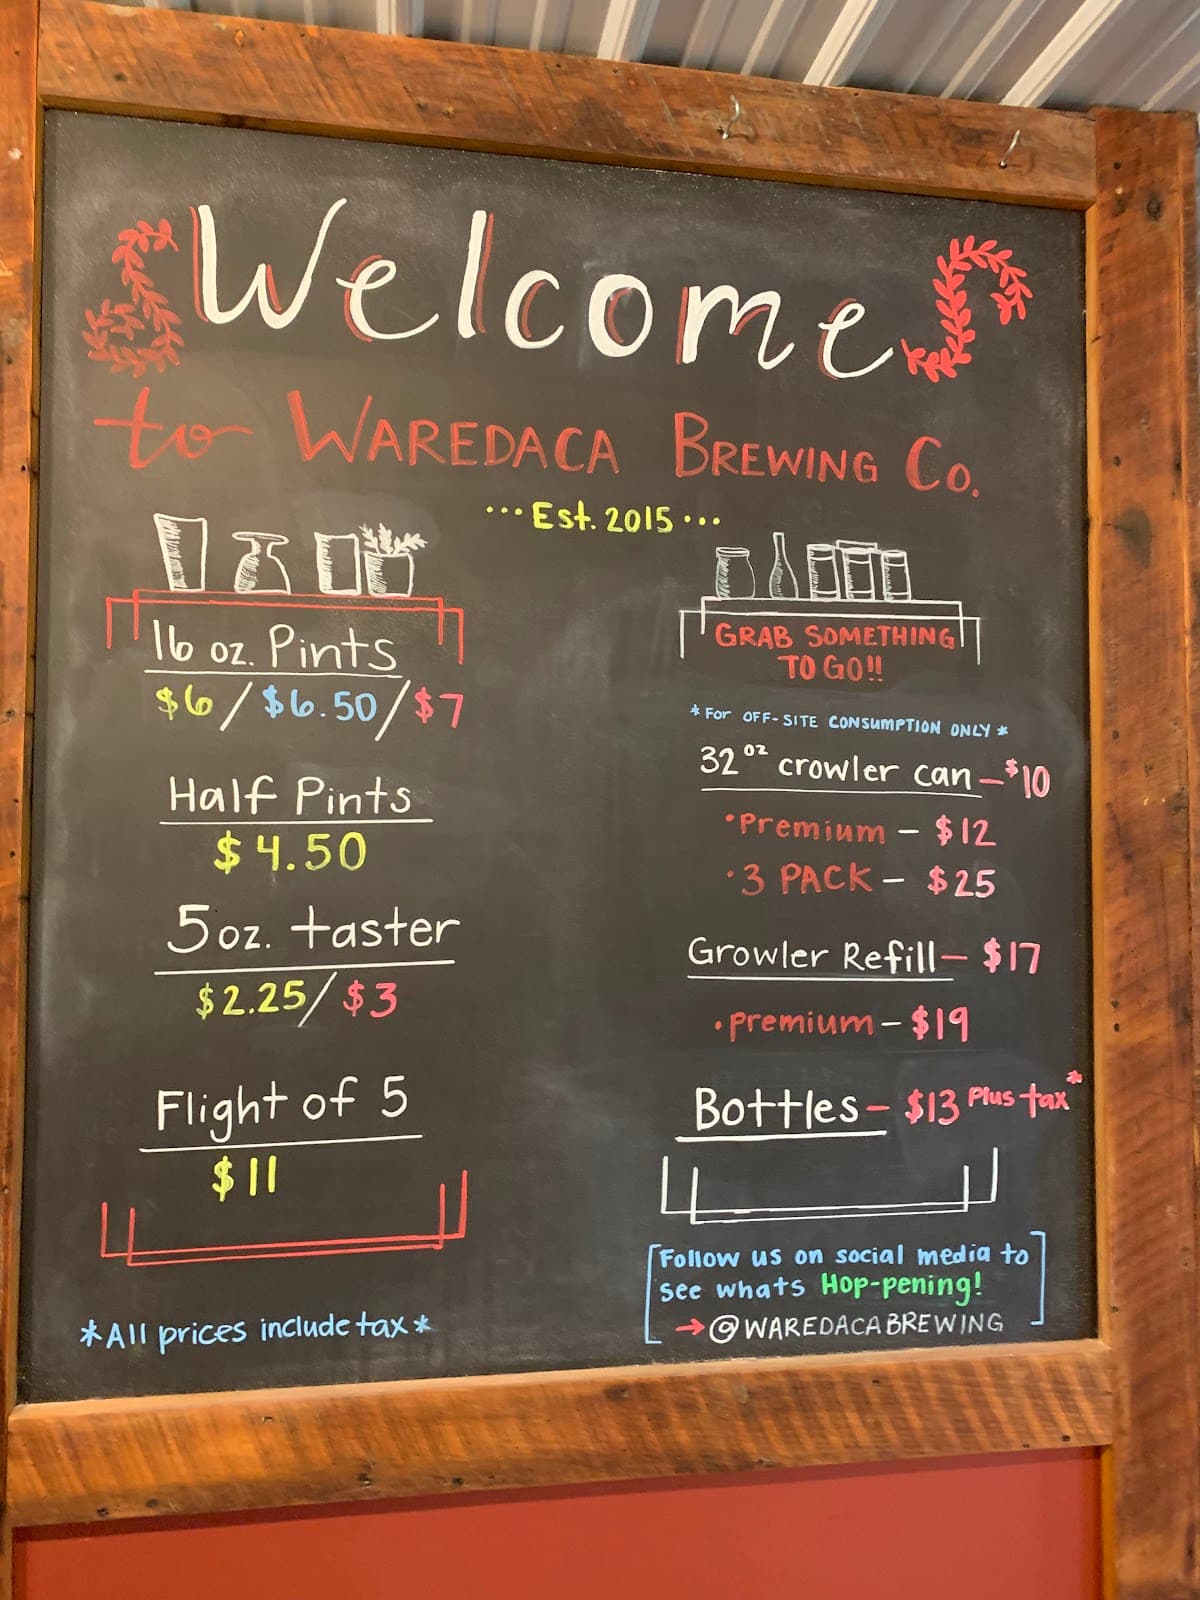 Welcome
to WAREDACA BREWING Co.
... Est. 2015 ...
16 oz. Pints
$6 / $6.50 / $7
Half Pints
$4.50
5 oz. taster
$2.25 / $3
Flight of 5
$11
*All prices include tax*
GRAB SOMETHING
TO GO!!
*FOR OFF-SITE CONSUMPTION ONLY*
32 oz crowler can - $10
•Premium - $12
•3 PACK - $25
Growler Refill - $17
•premium - $19
Bottles - $13 Plus tax*
Follow us on social media to
see whats Hop-pening!
→ @WAREDACABREWING